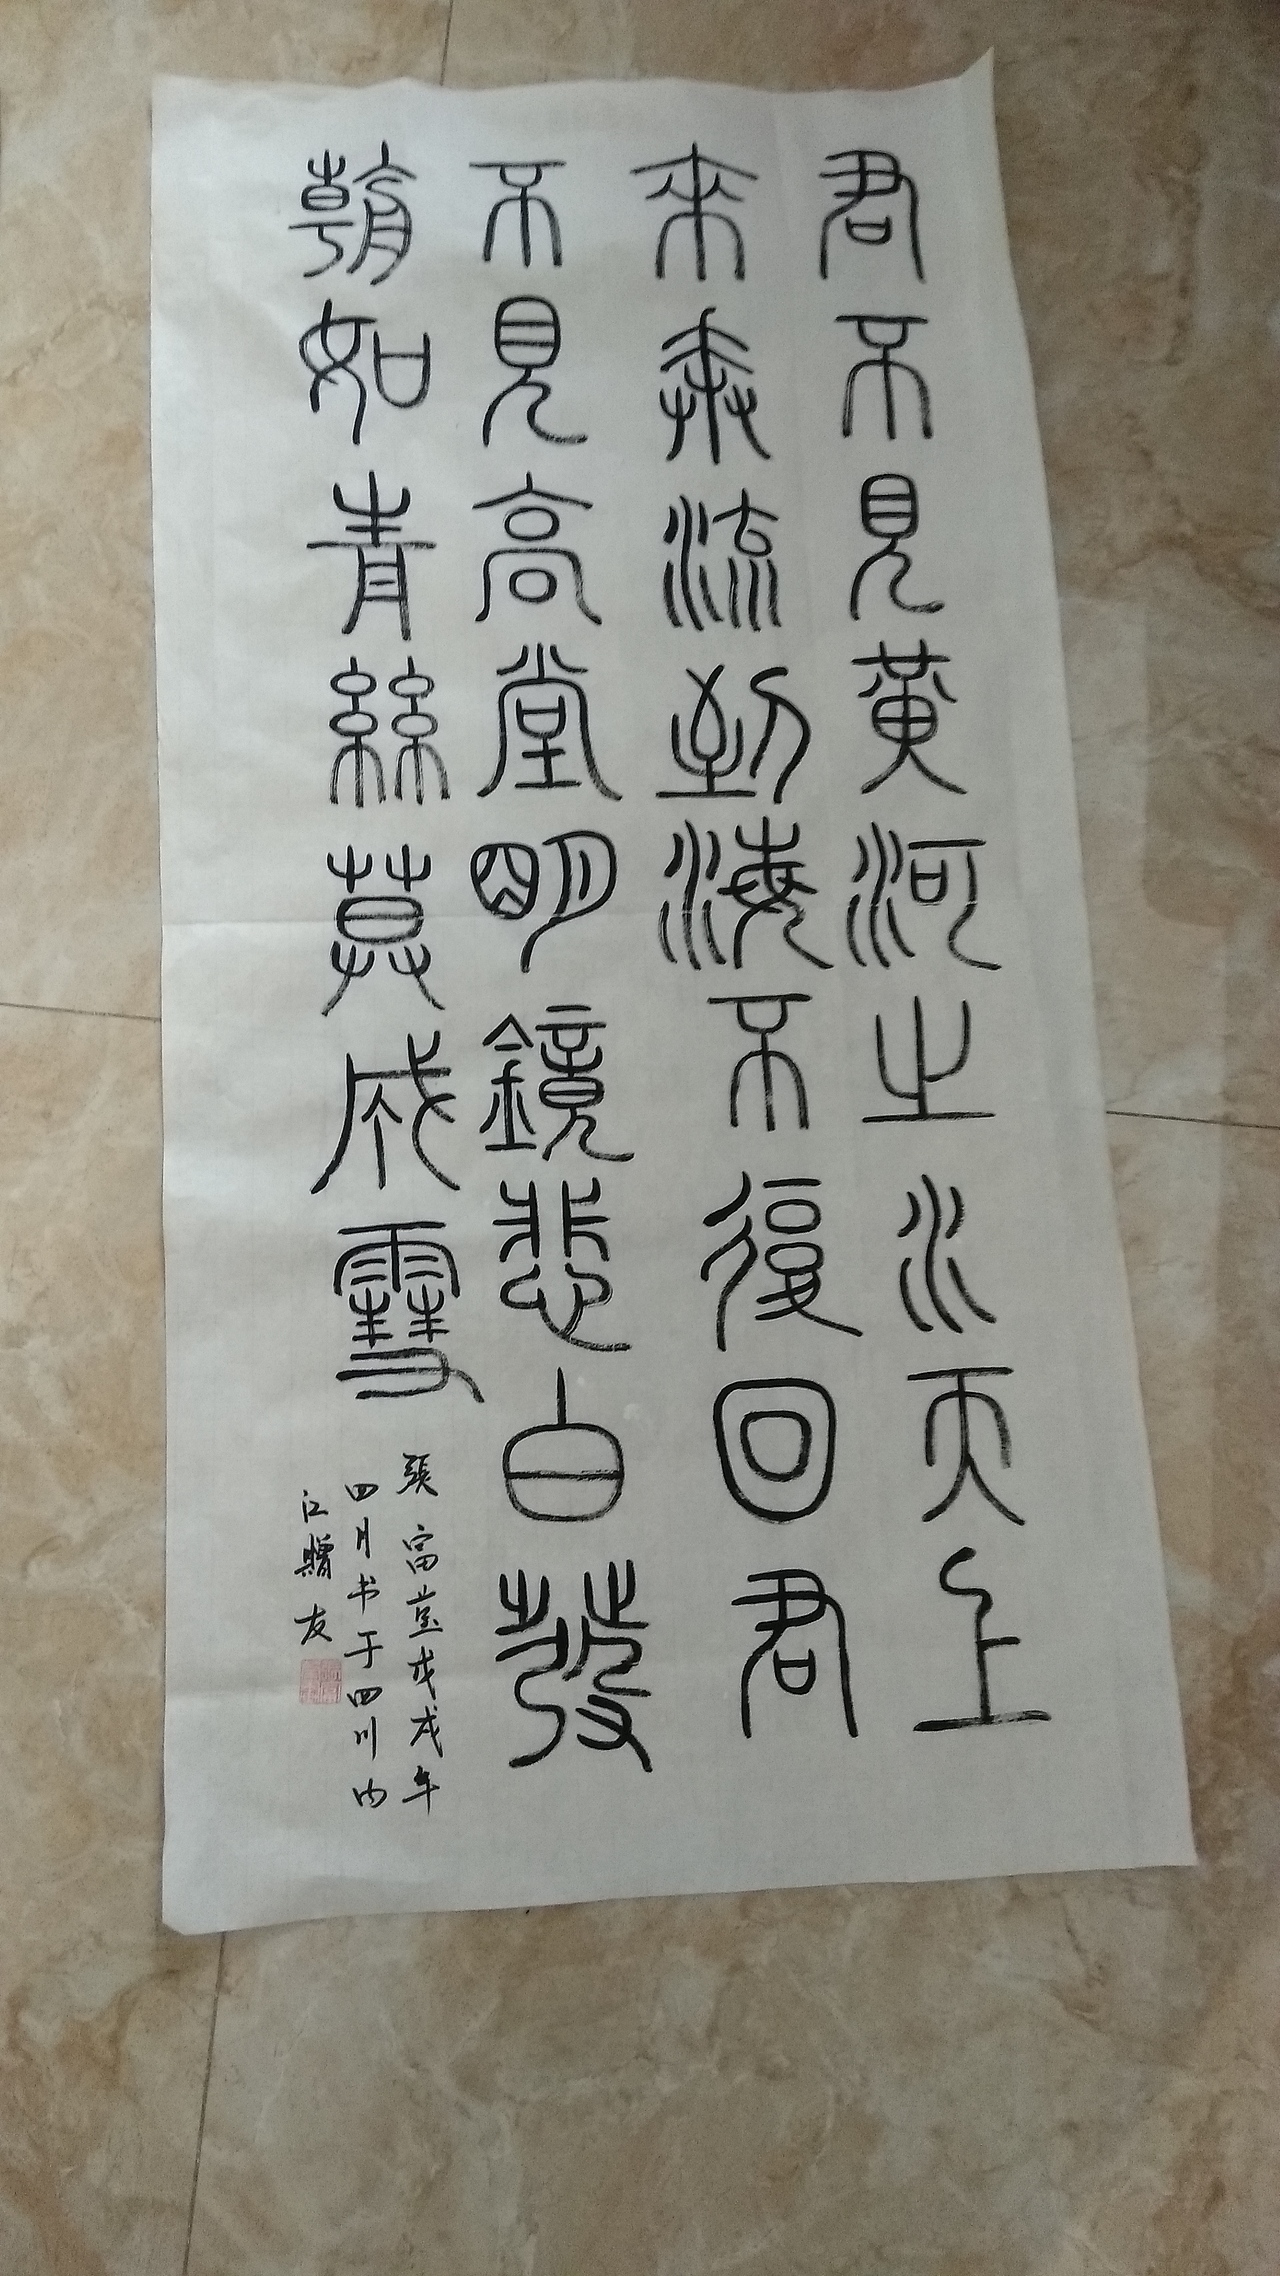 君不見黃河之水天上
來奔流到海不復回君
不見高堂明鏡悲白發
朝如青絲莫成雪
張富益戊戌年
四月书于四川内
江贈友